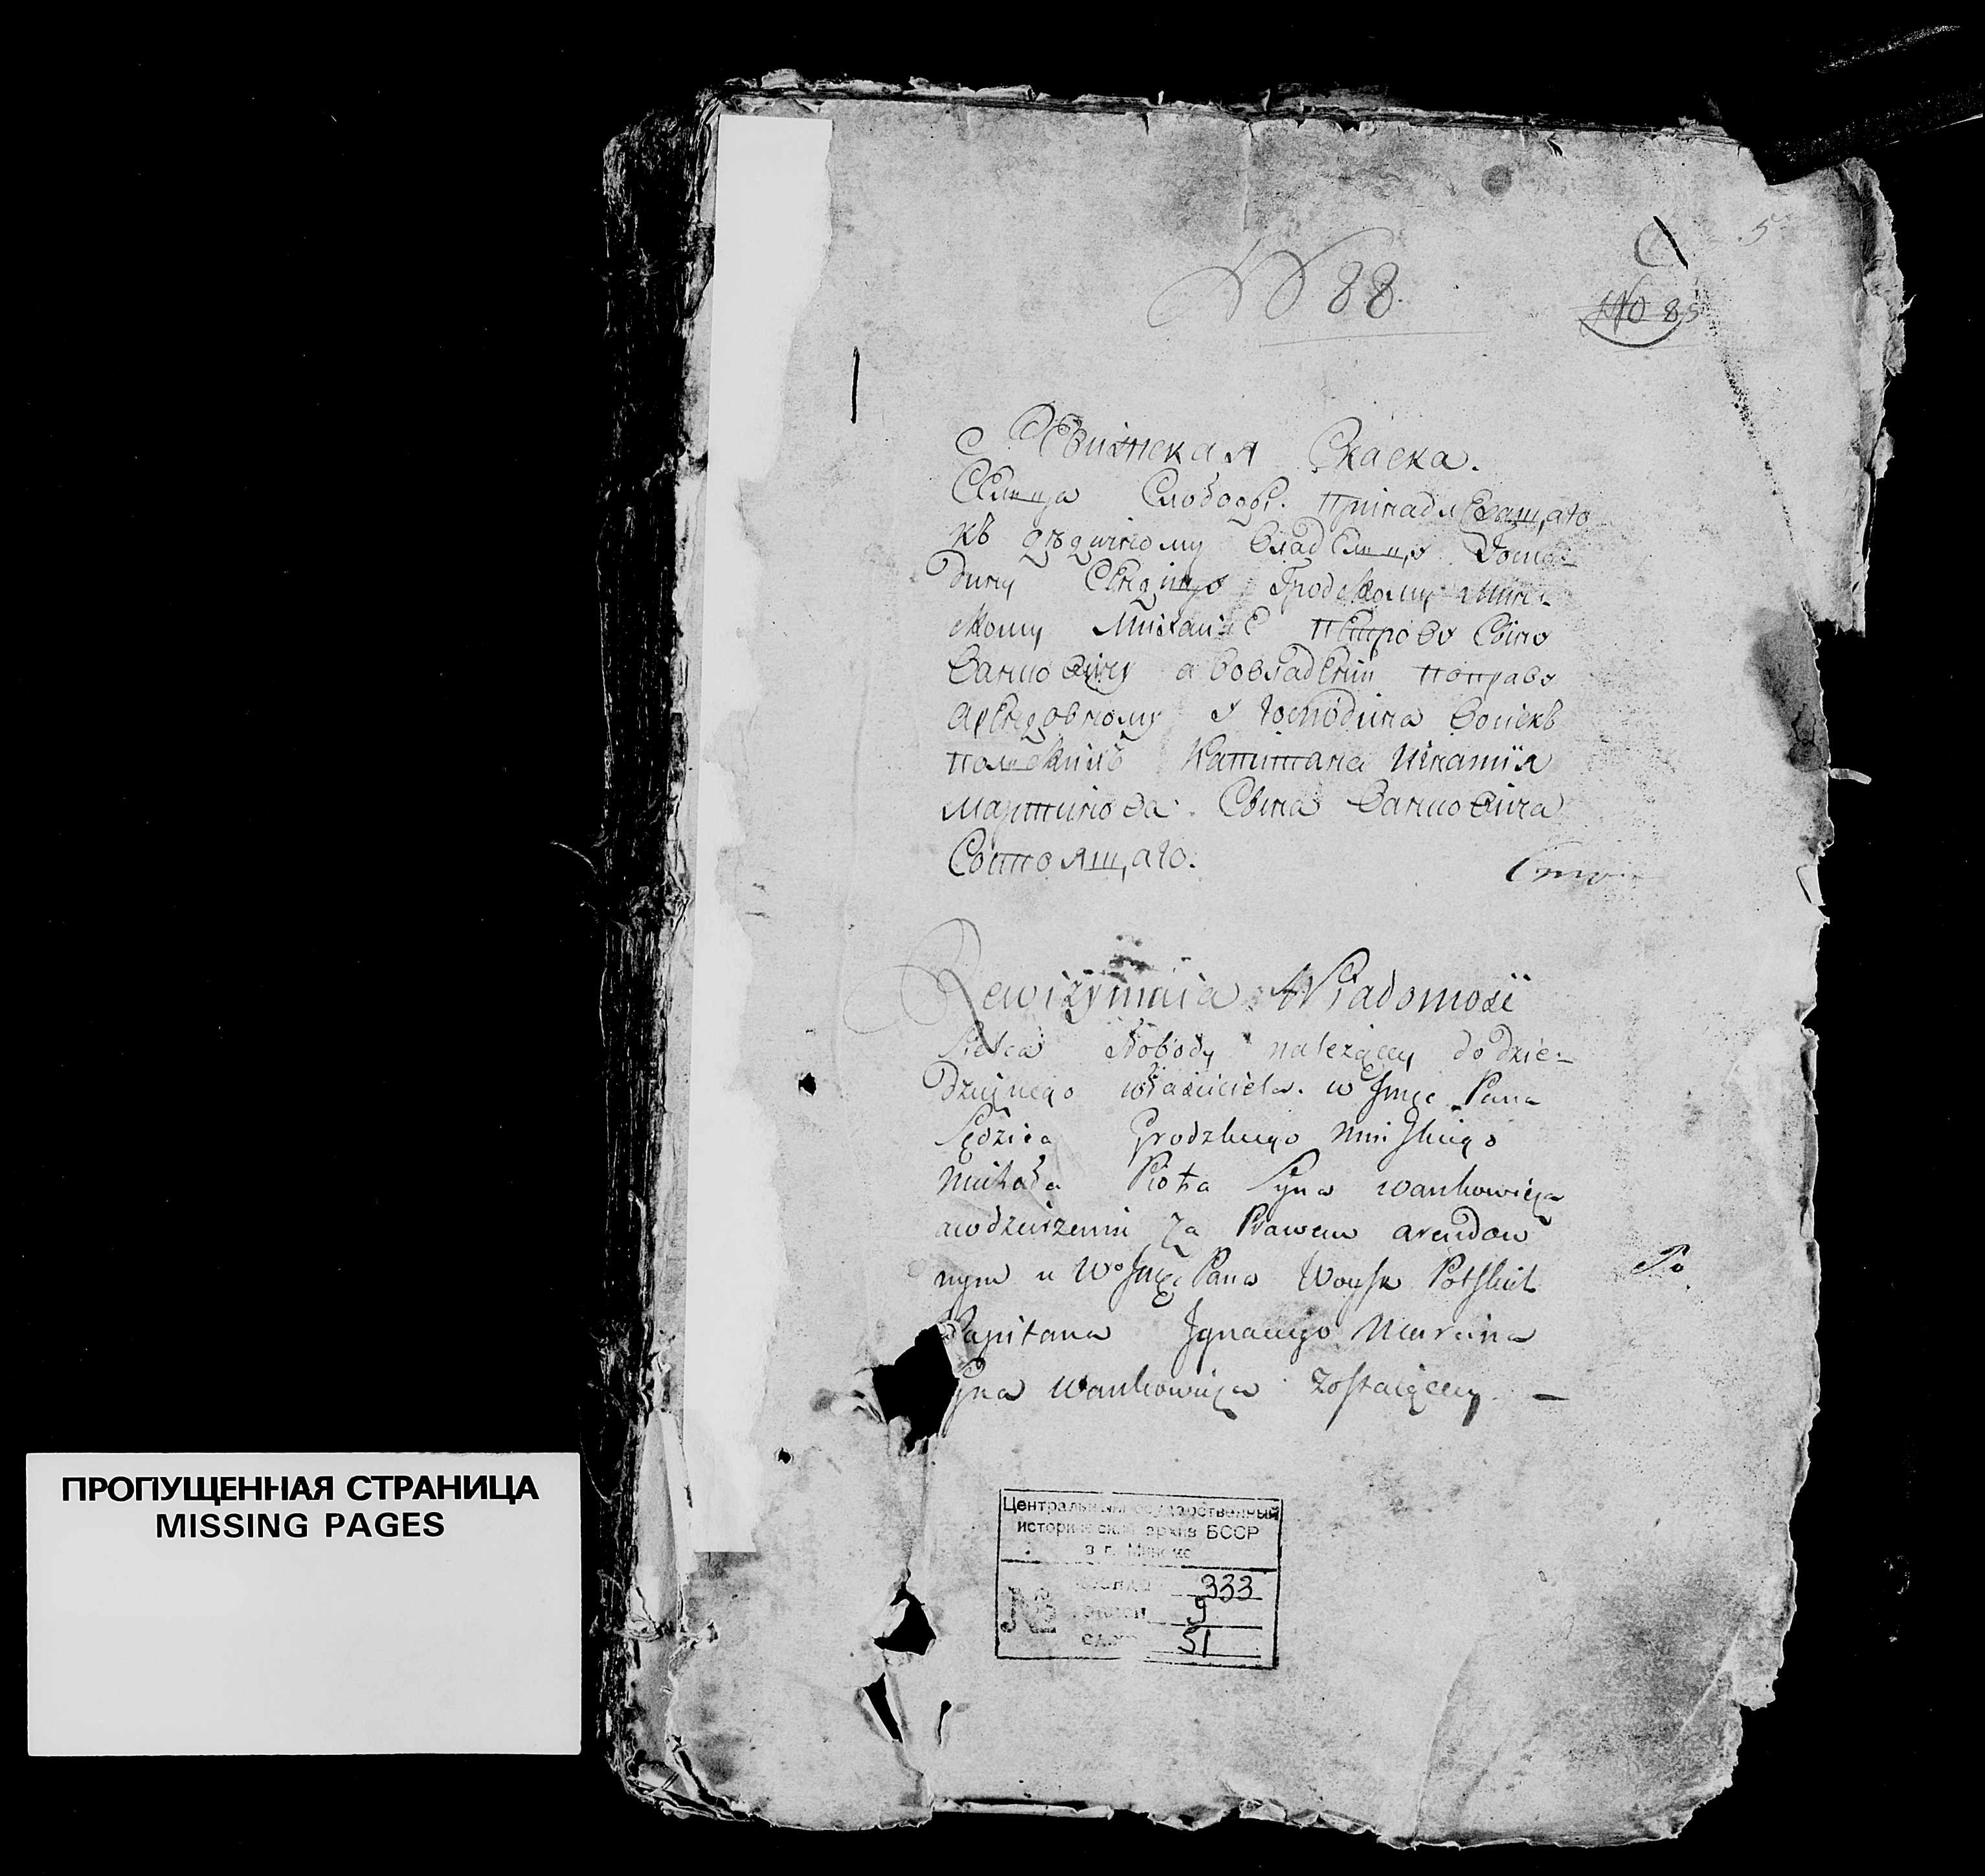 5
№ 88
№ 85
Ревизская Скаска.
Сельца Слободы. принадлежащаго
къ дѣдичному владельцу Госпо-
дину Сендзицу Гродскому Минс-
кому Михаилѣ Петрову Сыну
Ваньковичу а вовладении поправу
Арендовному у Господина Войскъ
польскихъ Капитана Игнатія
Мартинова Сына Ваньковича
Состоящаго.
Rewizyinaia Wiadomość
Sielca Słobody należącey do dzie-
dzicznego właściciela. W Jmc Pana
Sędzica Grodzkiego Mińskiego
Michała Piotra Syna Wankowicza
a w dzierżeniu za Prawem arendow
nym u Wo Jmci Pana Woysk Polskich
Kapitana Ignacego Marcina
Syna Wankowicza zostaiącey. —
Po
Центральный государственный
исторический архив БССР
в г. Минске
№
333
9
51
ПРОПУЩЕННАЯ СТРАНИЦА
MISSING PAGES